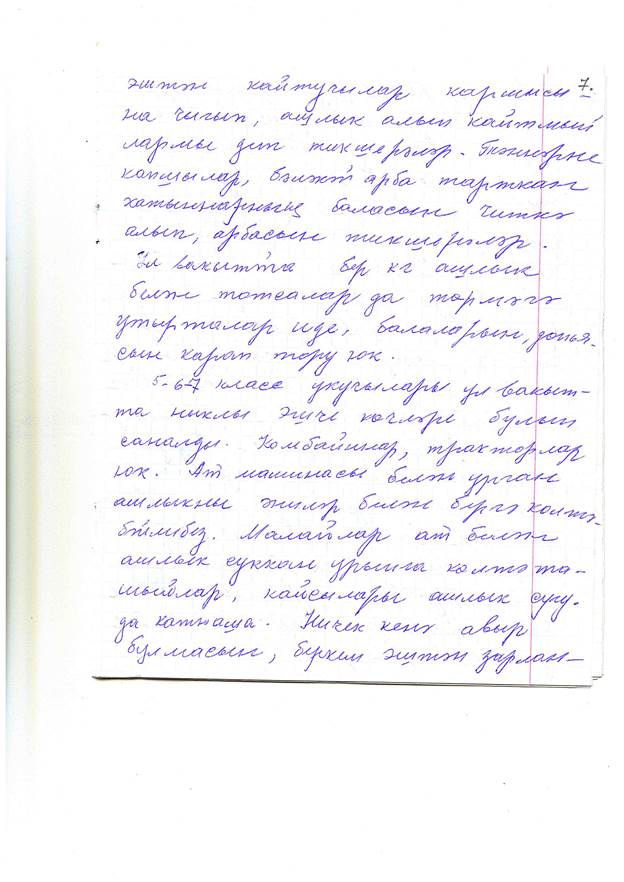 7.
эштән кайтучылар каршысы-
на чигып, ашлык алып кайтмый
лармы дип тикшерәләр.
капшылар, бәләкәй арба тарткан
хатыннарның баласын читкә
алып, арбасын тикшерәләр.
Ул вакытта бер кг ашлык
белән тотсалар да төрмәгә
утырталар иде, балаларын, донья-
сын карап тору юк.
5-6-7 класс укучылары ул вакыт-
та никлы эшче көчләре булып
саналды. Комбайннар, тракторлар
юк. Ат машинасы белән урган
ашлыкны әниләр белән бергә көлтә-
бәйлибез. Малайлар ат белән
ашлык суккан урынга көлтә та-
шыйлар, кайсылары ашлык сугу-
да катнаша. Ничек кенә авыр
булмасын, беркем эштән зарлан-